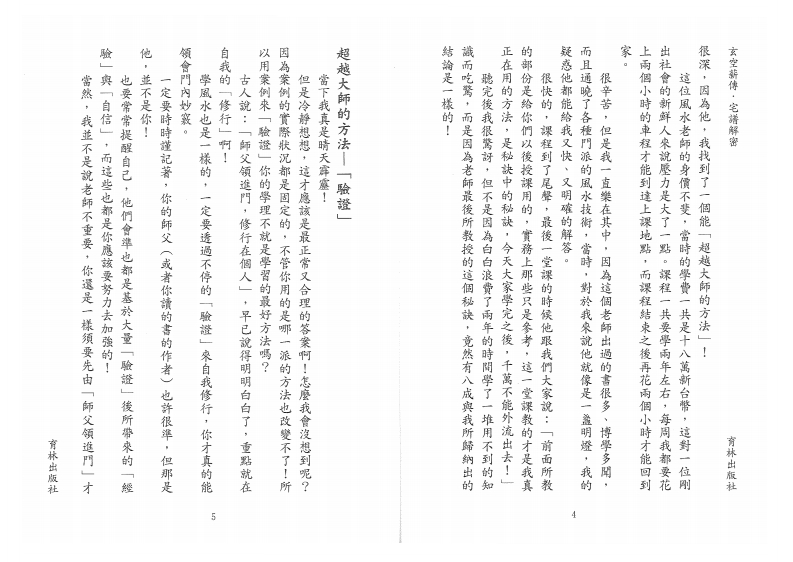 玄空薪傳．宅譜解密
育林出版社
很深，因為他，我找到了一個能「超越大師的方法」！
這位風水老師的身價不斐，當時的學費一共是十八萬新台幣，這對一位剛
出社會的新鮮人來說壓力是大了一點。課程一共要學兩年左右，每周我都要花
上兩個小時的車程才能到達上課地點，而課程結束之後再花兩個小時才能回到
家。
很辛苦，但是我一直樂在其中，因為這個老師出過的書很多、博學多聞，
而且通曉了各種門派的風水技術，當時，對於我來說他就像是一盞明燈，我的
疑惑他都能給我又快、又明確的解答。
很快的，課程到了尾聲，最後一堂課的時候他跟我們大家說：「前面所教
的部份是給你們以後授課用的，實務上那些只是參考，這一堂課教的才是我真
正在用的方法，是秘訣中的秘訣，今天大家學完之後，千萬不能外流出去！」
聽完後我很驚訝，但不是因為白白浪費了兩年的時間學了一堆用不到的知
識而吃驚，而是因為老師最後所教授的這個秘訣，竟然有八成與我所歸納出的
結論是一樣的！
4
超越大師的方法—「驗證」
當下我真是晴天霹靂！
但是冷靜想想，這才應該是最正常又合理的答案啊！怎麼我會沒想到呢？
因為案例的實際狀況都是固定的，不管你用的是哪一派的方法也改變不了！所
以用案例來「驗證」你的學理不就是學習的最好方法嗎？
古人說：「師父領進門，修行在個人」，早已說得明明白白了，重點就在
自我的「修行」啊！
學風水也是一樣的，一定要透過不停的「驗證」來自我修行，你才真的能
領會門內妙竅。
一定要時時謹記著，你的師父（或者你讀的書的作者）也許很準，但那是
他，並不是你！
也要常常提醒自己，他們會準也都是基於大量「驗證」後所帶來的「經
驗」與「自信」，而這些也都是你應該要努力去加強的！
當然，我並不是說老師不重要，你還是一樣須要先由「師父領進門」才
育林出版社
5